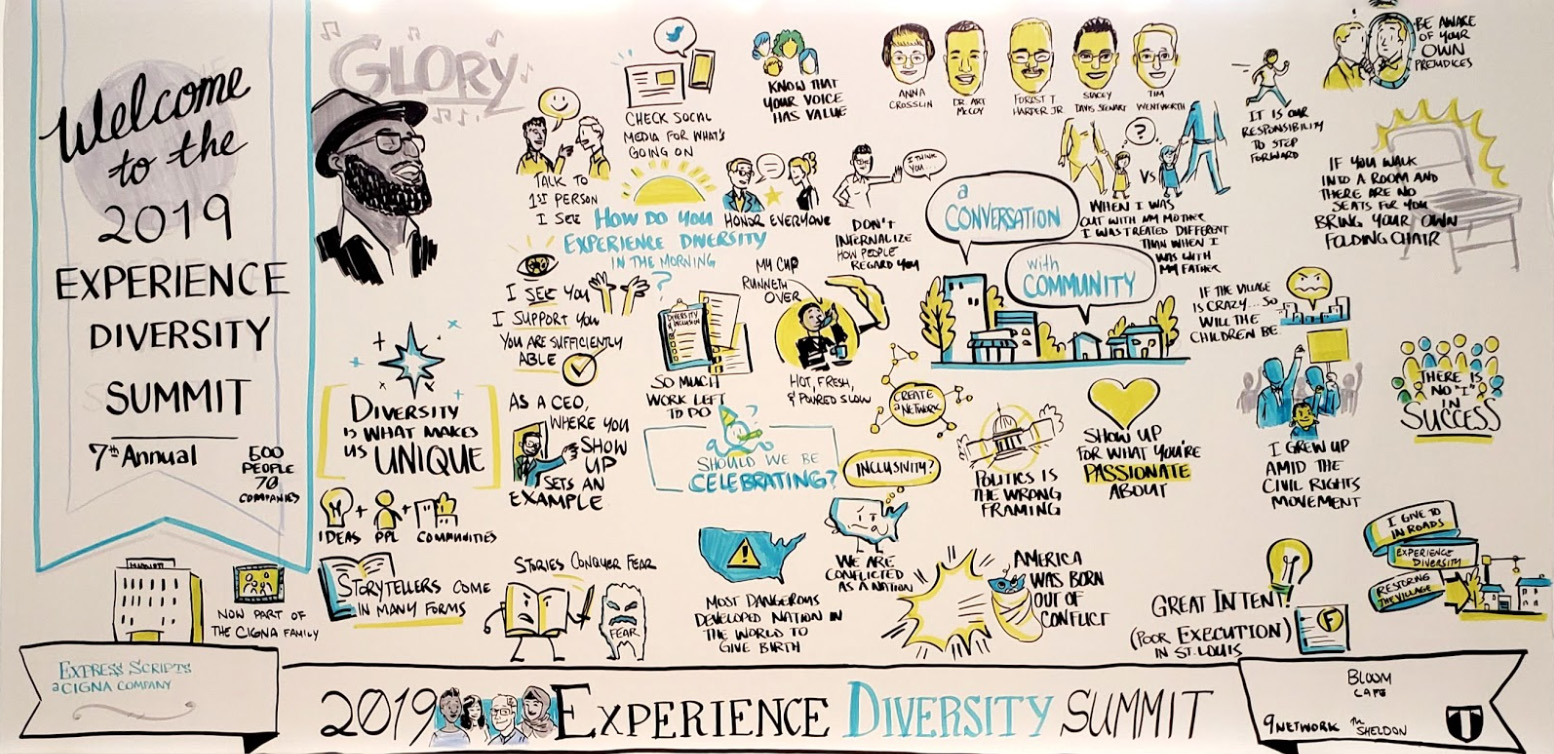 Welcome
to the
2019
EXPERIENCE
DIVERSITY
SUMMIT
7th Annual
500
PEOPLE
70
COMPANIES
MARRIOTT
NOW PART OF
THE CIGNA FAMILY
EXPRESS SCRIPTS
a CIGNA COMPANY
GLORY
TALK TO
1ST PERSON
I SEE
CHECK SOCIAL
MEDIA FOR WHAT'S
GOING ON
KNOW THAT
YOUR VOICE
HAS VALUE
HOW DO YOU
EXPERIENCE DIVERSITY
IN THE MORNING
?
HONOR EVERYONE
I THINK
YOU...
DON'T
INTERNALIZE
HOW PEOPLE
REGARD YOU
I SEE YOU
I SUPPORT YOU
YOU ARE SUFFICIENTLY
ABLE
DIVERSITY
& INCLUSION
SO MUCH
WORK LEFT
TO DO
MY CUP
RUNNETH
OVER
HOT, FRESH,
& POURED SLOW
DIVERSITY
IS WHAT MAKES
US UNIQUE
IDEAS + PPL + COMMUNITIES
AS A CEO,
WHERE YOU
SHOW
UP
SETS AN
EXAMPLE
SHOULD WE BE
CELEBRATING?
STORYTELLERS COME
IN MANY FORMS
STORIES CONQUER FEAR
FEAR
ANNA
CROSSLIN
DR. ART
McCOY
FOREST T
HARPER JR
STACEY
DAVIS STEWART
TIM
WENTWORTH
a
CONVERSATION
with
COMMUNITY
?
VS
WHEN I WAS
OUT WITH MY MOTHER
I WAS TREATED DIFFERENT
THAN WHEN I
WAS WITH
MY FATHER
IT IS OUR
RESPONSIBILITY
TO STEP
FORWARD
BE AWARE
OF YOUR
OWN
PREJUDICES
IF YOU WALK
INTO A ROOM AND
THERE ARE NO
SEATS FOR YOU
BRING YOUR OWN
FOLDING CHAIR
IF THE VILLAGE
IS CRAZY... SO
WILL THE
CHILDREN BE
CREATE
a NETWORK
INCLUSIVITY?
POLITICS IS
THE WRONG
FRAMING
SHOW UP
FOR WHAT YOU'RE
PASSIONATE
ABOUT
I GREW UP
AMID THE
CIVIL RIGHTS
MOVEMENT
THERE IS
NO "I"
IN
SUCCESS
MOST DANGEROUS
DEVELOPED NATION IN
THE WORLD TO
GIVE BIRTH
WE ARE
CONFLICTED
AS A NATION
AMERICA
WAS BORN
OUT OF
CONFLICT
GREAT INTENT!
(POOR EXECUTION)
IN ST. LOUIS
F
I GIVE TO
IN ROADS
EXPERIENCE
DIVERSITY
RESTORING
THE VILLAGE
2019 EXPERIENCE DIVERSITY SUMMIT
BLOOM
CAFE
9 NETWORK
THE
SHELDON